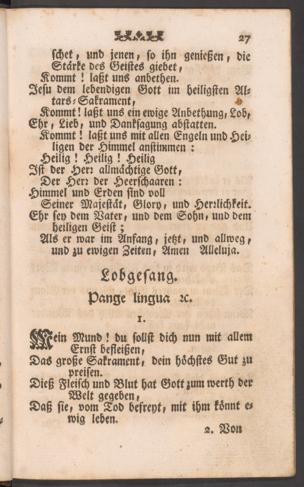 27
schet, und jenen, so ihn genießen, die
Stärke des Geistes giebet,
Kommt! laßt uns anbethen.
Jesu dem lebendigen Gott im heiligsten Al-
tars-Sakrament,
Kommt! laßt uns ein ewige Anbethung, Lob,
Ehr, Lieb, und Danksagung abstatten.
Kommt! laßt uns mit allen Engeln und Hei-
ligen der Himmel anstimmen:
Heilig! Heilig! Heilig
Ist der Herr allmächtige Gott,
Der Herr der Heerschaaren:
Himmel und Erden sind voll
Seiner Majestät, Glory, und Herrlichkeit.
Ehr sey dem Vater, und dem Sohn, und dem
heiligen Geist;
Als er war im Anfang, jetzt, und allweg,
und zu ewigen Zeiten, Amen Alleluja.
Lobgesang.
Pange lingua ꝛc.
1.
Mein Mund! du sollst dich nun mit allem
Ernst befleißen,
Das große Sakrament, dein höchstes Gut zu
preisen.
Dieß Fleisch und Blut hat Gott zum werth der
Welt gegeben,
Daß sie, vom Tod befreyt, mit ihm könnt e-
wig leben.
2. Von